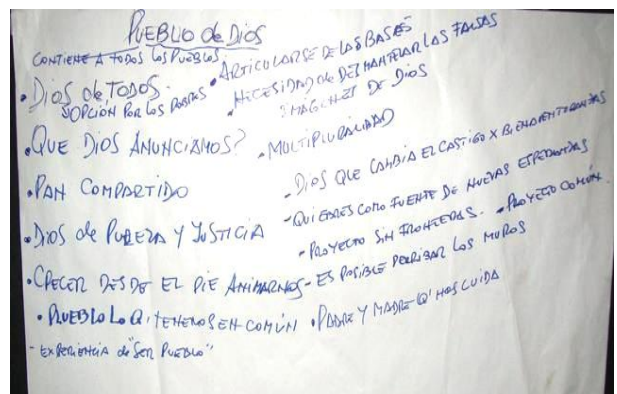 PUEBLO de DIOS
CONTIENE A TODOS LOS PUEBLOS
• DIOS de TODOS.
OPCIÓN POR LOS POBRES
• QUE DIOS ANUNCIAMOS?
• PAN COMPARTIDO
• DIOS de PUREZA Y JUSTICIA
• CRECER DESDE EL PIE ANIMARNOS
• PUEBLO LO Q' TENEMOS EN COMÚN
- EXPERIENCIA de "SER PUEBLO"
• ARTICULARSE DE LAS BASES
• NECESIDAD de DESMANTELAR LAS FALSAS
IMAGENES DE DIOS
• MULTIPLURALIDAD
- DIOS QUE CAMBIA EL CASTIGO X BIENAVENTURANZAS
- QUIEBRES COMO FUENTE DE NUEVAS ESPERANZAS
- PROYECTO SIN FRONTERAS.
- PROYECTO COMÚN.
- ES POSIBLE DERRIBAR LOS MUROS
• PADRE Y MADRE Q' NOS CUIDA